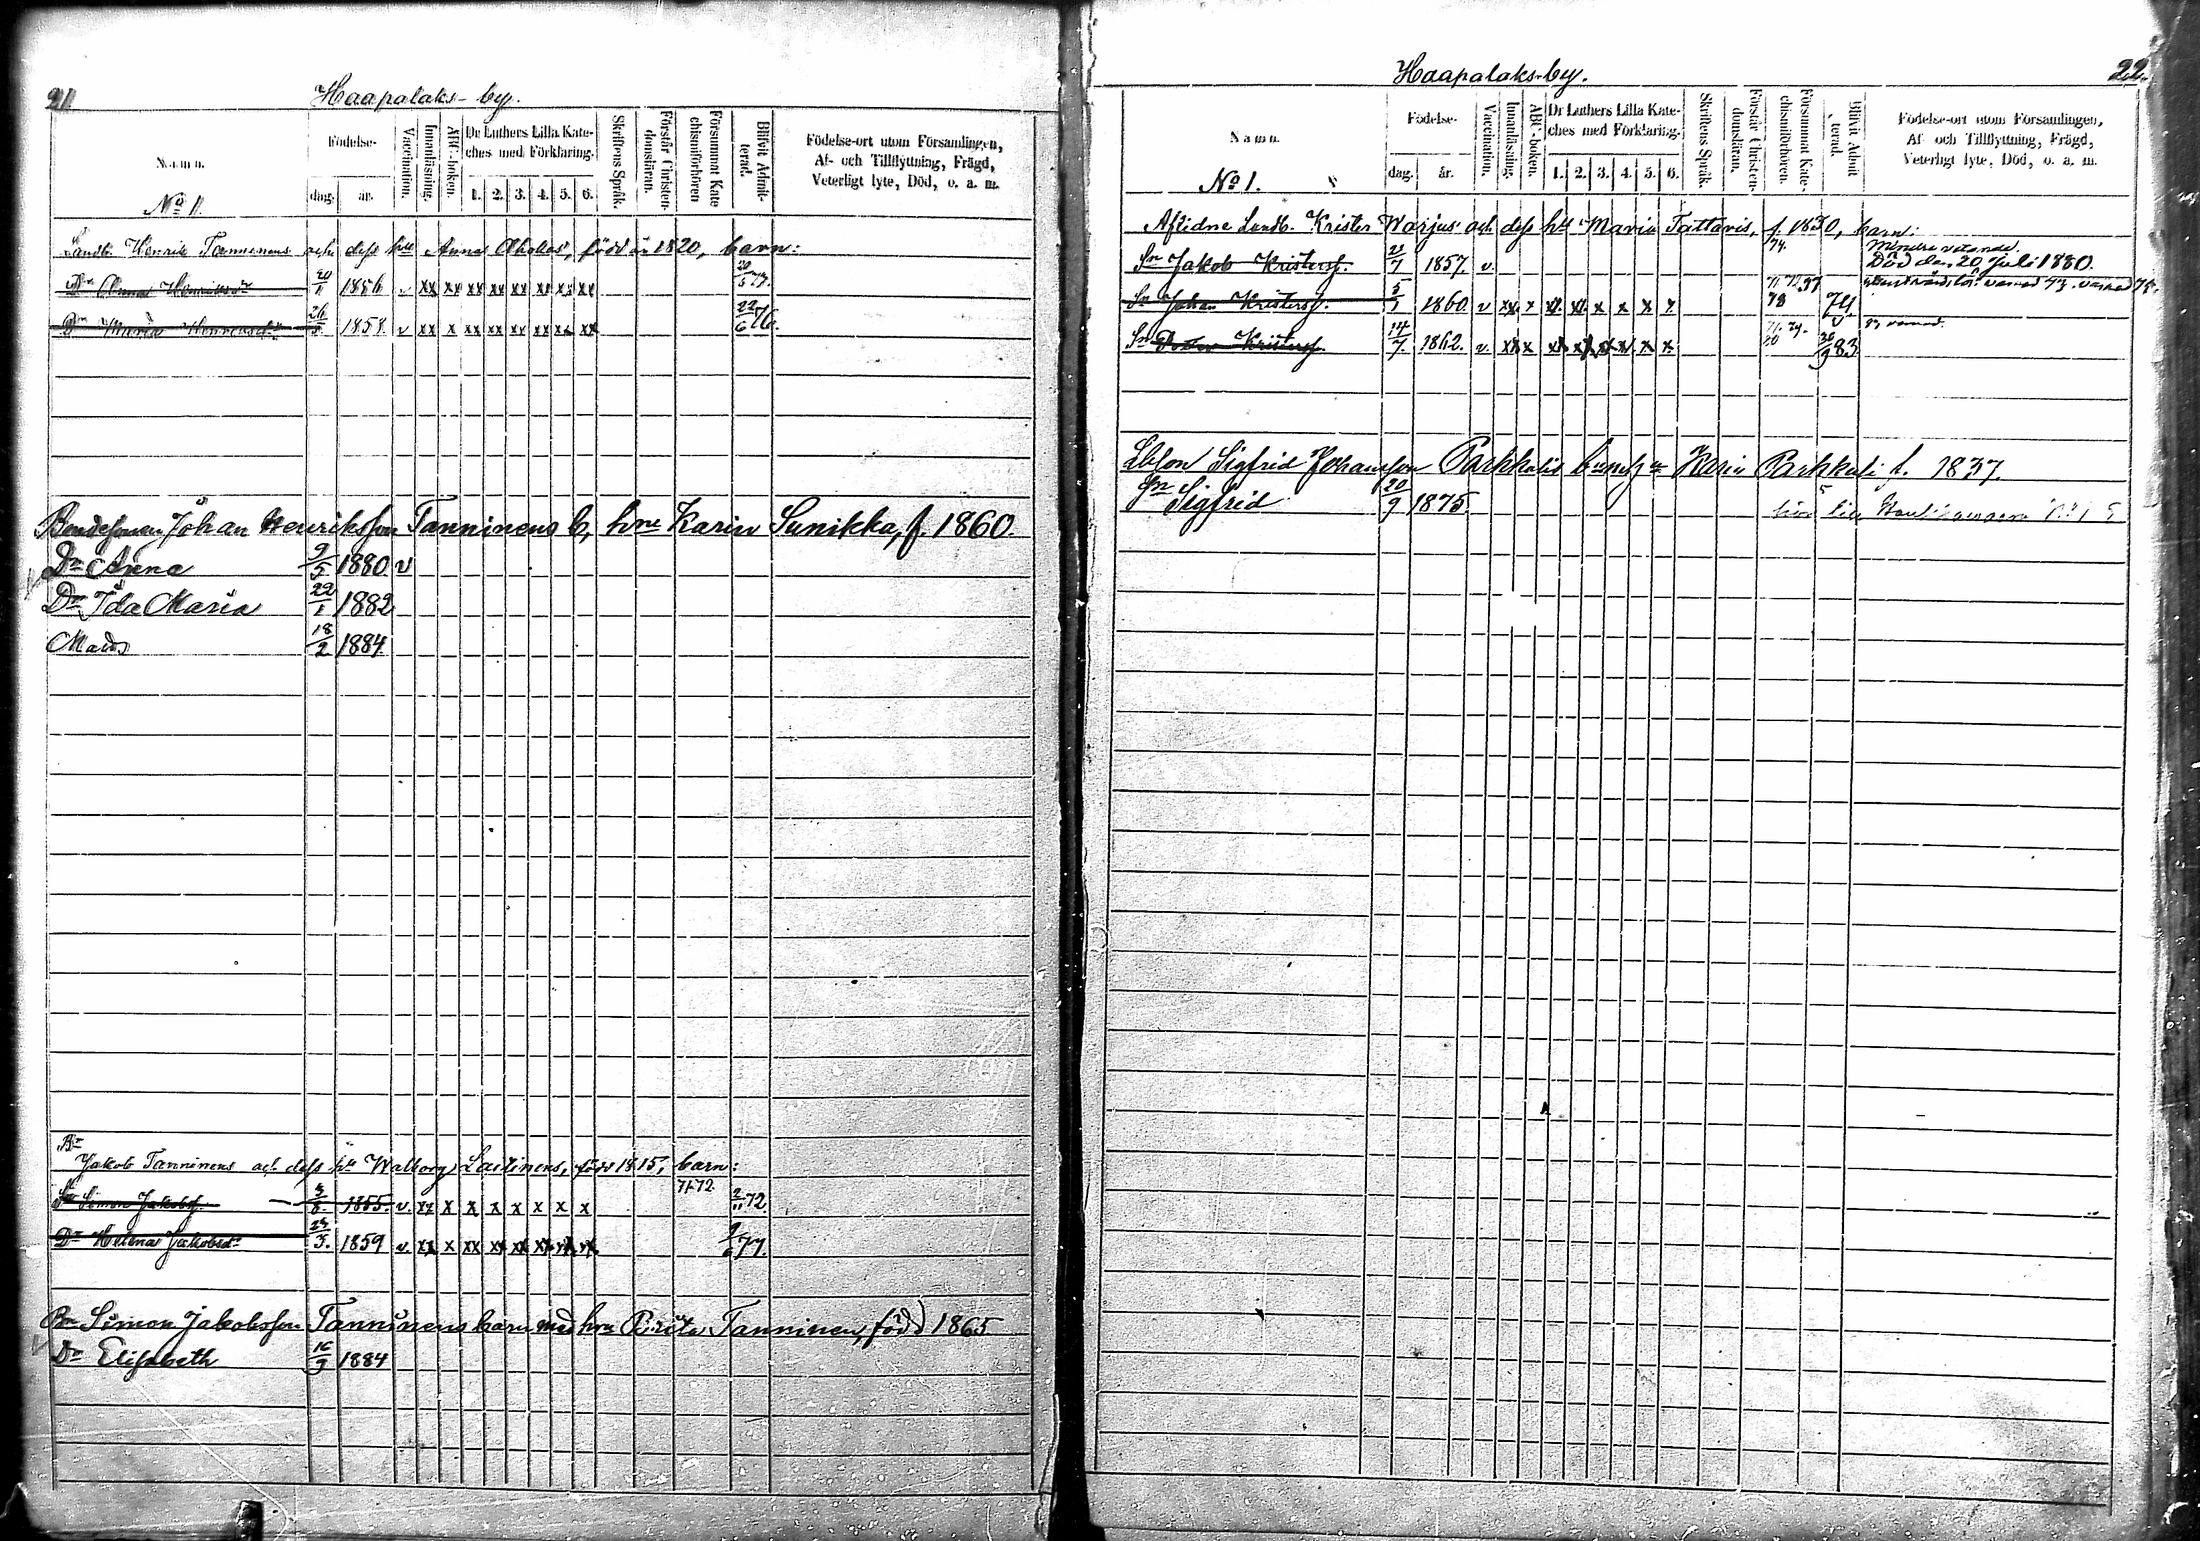 21
Haapalaks-by.
Namn.
Födelse-
dag.
år.
Vaccination.
Innanläsning.
ABC-boken.
Dr Luthers Lilla Kate-
ches med Förklaring.
1. 2. 3. 4. 5. 6.
Skriftens Språk.
Förstår Christen-
domsläran.
Försummat Kate
chismiförhören
Blifvit Admit-
terad.
Födelse-ort utom Församlingen,
Af- och Tillflyttning, Frägd,
Veterligt lyte, Död, o. a. m.
No 1.
Landb. Henrik Tanninens och dess hu Anna Aholas, född år 1820, barn:
Dr Anna Henriksdr 20/1 1856 v xx xx xx xx xx xx xx xx 20/5 73.
Dr Maria Henriksdr 26/5 1858. v xx x xx xx xx xx xx xx 22/6 76.
Bondesonen Johan Henriksson Tanninens b, hru Karin Sunikka, f. 1860.
Dr Anna 9/5 1880 v
Dr Ida Maria 22/1 1882
Mats 18/2 1884
Br
Jakob Tanninens och dess hu Walborg Laitinens, född 1815, barn:
Sn Simon Jakobss. 3/8. 1855. v. xx x x x x x x x 71-72 2/11 72.
Dr Helena Jakobsdr 23/5. 1859 v. xx x xx xx xx xx xx xx 9/6 77.
Bn Simon Jakobsson Tanninens barn med hru Brita Tanninen, född 1865
Dr Elisabeth 16/9 1884
Haapalaks-by.
22.
Namn.
Födelse-
dag.
år.
Vaccination.
Innanläsning.
ABC-boken.
Dr Luthers Lilla Kate-
ches med Förklaring.
1. 2. 3. 4. 5. 6.
Skriftens Språk.
Förstår Christen-
domsläran.
Försummat Kate-
chismiförhören.
Blifvit Admit
terad.
Födelse-ort utom Församlingen,
Af- och Tillflyttning, Frägd,
Veterligt lyte, Död, o. a. m.
No 1.
Aflidne Landb. Krister Warjus och dess hu Maria Tattaris, f. 1830, barn:
Sn Jakob Kristerss. 2/7 1857. v. 74. Mindre vetande.
Död den 20 Juli 1880.
Sn Johan Kristerss. 5/1 1860. v xx. x xx. xx. x x x x 71 72 77 78 74 varnad 73. varnad 75.
Sn Kristerss. 14/7. 1862. v. xx x xx xx xx xx x x 71. 74. 80 30/9 83 varnad.
Sigfrid Johansson Parkkalis Karin Parkkali f. 1837.
Sn Sigfrid 20/9 1875